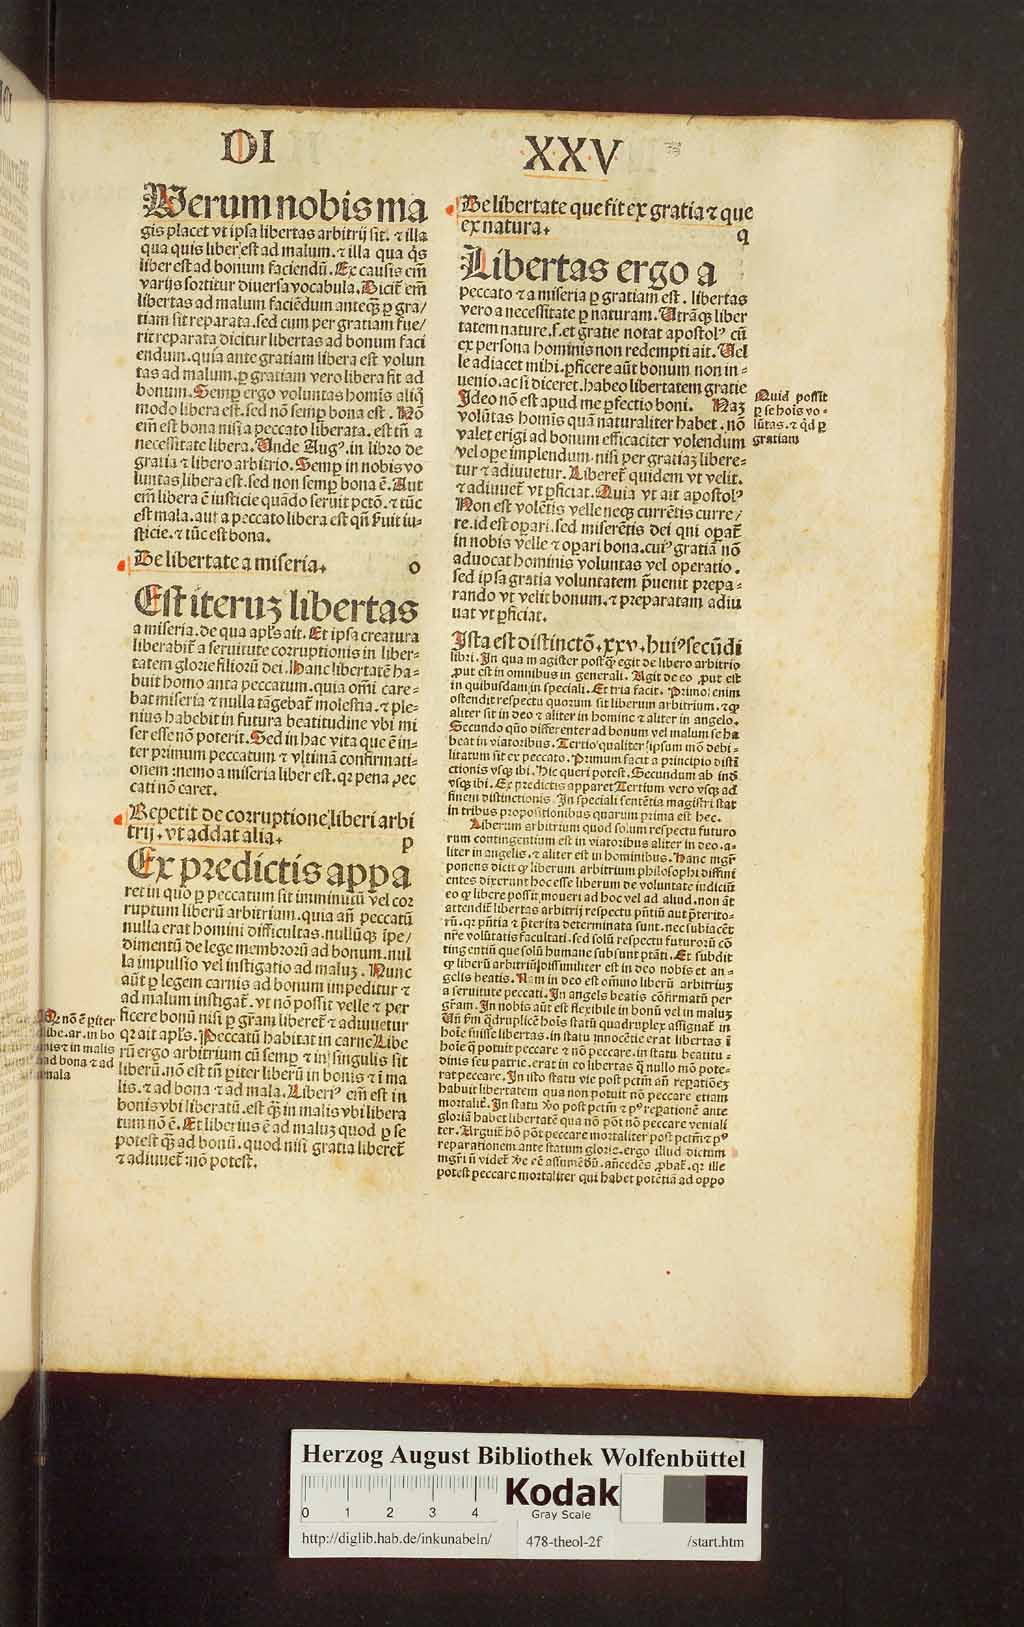 DI XXV
Verum nobis ma
gis placet vt ipsa libertas arbitrij sit. ⁊ illa
qua quis liber est ad malum. ⁊ illa qua q̇s
liber est ad bonum faciendū. Ex causis em̄
varijs sortitur diuersa vocabula. Dicit᷑ em̄
libertas ad malum faciēdum anteqꝫ ꝑ gra/
tiam sit reparata. sed cum per gratiam fue/
rit reparata dicitur libertas ad bonum faci
endum. quia ante gratiam libera est volun
tas ad malum. ꝑ gratiam vero libera fit ad
bonum. Semꝑ ergo voluntas homīs aliq̄
modo libera est. sed nō semꝑ bona est. Nō
em̄ est bona nisi a peccato liberata. est tn̄ a
necessitate libera. Unde Augꝰ. in libro de
gratia ⁊ libero arbitrio. Semꝑ in nobis vo
luntas libera est. sed non semꝑ bona ē. Aut
em̄ libera ē iusticie quādo seruit pctō. ⁊ tūc
est mala. aut a peccato libera est qn̄ ẜuit iu-
sticie. ⁊ tūc est bona.
De libertate a miseria. o
Est iteruꝫ libertas
a miseria. de qua apl̓s ait. Et ipsa creatura
liberabit᷑ a seruitute corruptionis in liber-
tatem glorie filiorū dei. Hanc libertatē ha-
buit homo anta peccatum. quia om̄i care-
bat miseria ⁊ nulla tāgebat᷑ molestia. ⁊ ple-
nius habebit in futura beatitudine vbi mi
ser esse nō poterit. Sed in hac vita que ē in-
ter primum peccatum ⁊ vltimā confirmati-
onem: nemo a miseria liber est. qꝛ pena pec
cati nō caret.
Repetit de corruptione liberi arbi
trij. vt addat alia. p
Ex predictis appa
ret in quo ꝑ peccatum sit imminutū vel cor
ruptum liberū arbitrium. quia an̄ peccatū
nulla erat homini difficultas. nullūqꝫ īpe/
dimentū de lege membrorū ad bonum. nul
la impulsio vel instigatio ad maluꝫ. Nunc
aūt ꝑ legem carnis ad bonum impeditur ⁊
ad malum instigat᷑. vt nō possit velle ⁊ per
ficere bonū nisi ꝑ gr̄am liberet᷑ ⁊ adiuuetur
qꝛ ait apl̓s. Peccatū habitat in carne Libe
rū ergo arbitrium cū semꝑ ⁊ in singulis sit
liberū. nō est tn̄ ꝑiter liberū in bonis ⁊ ī ma
lis. ⁊ ad bona ⁊ ad mala. Liberiꝰ em̄ est in
bonis vbi liberatū. est qꝫ in malis vbi libera
tum nō ē. Et liberius ē ad maluꝫ quod ꝑ se
potest qꝫ ad bonū. quod nisi gratia liberet᷑
⁊ adiuuet᷑: nō potest.
Qꝛ nō ē ꝑiter
libe. ar. in bo
nis ⁊ in malis
ad bona ⁊ ad
mala
De libertate que fit ex gratia ⁊ que
ex natura. q
Libertas ergo a
peccato ⁊ a miseria ꝑ gratiam est. libertas
vero a necessitate ꝑ naturam. Utrāqꝫ liber
tatem nature. s. et gratie notat apostolꝰ cū
ex persona hominis non redempti ait. Vel
le adiacet mihi. ꝑficere aūt bonum non in-
uenio. ac si diceret. habeo libertatem gratie
Ideo nō est apud me ꝑfectio boni. Naꝫ
volūtas homīs quā naturaliter habet. nō
valet erigi ad bonum efficaciter volendum
vel oꝑe implendum. nisi per gratiaꝫ libere-
tur ⁊ adiuuetur. Liberet᷑ quidem vt velit.
⁊ adiuuet᷑ vt ꝑficiat. Quia vt ait apostolꝰ
Non est volētis velle neqꝫ currētis curre/
re. id est oꝑari. sed miserētis dei qui oꝑat᷑
in nobis velle ⁊ oꝑari bona. cuiꝰ gratiā nō
aduocat hominis voluntas vel operatio.
sed ipsa gratia voluntatem p̄uenit prepa-
rando vt velit bonum. ⁊ preparatam adiu
uat vt ꝑficiat.
Quid possit
ꝑ se hoīs vo-
lūtas. ⁊ q̇d ꝑ
gratiam
Ista est distinctō. xxv. huiꝰ secūdi
libri. In qua magister postqꝫ egit de libero arbitrio
ꝓut est in omnibus in generali. Agit de eo ꝓut est
in quibusdam in speciali. Et tria facit. Primo enim
ostendit respectu quorum sit liberum arbitrium. ⁊ ꝙ
aliter sit in deo ⁊ aliter in homine ⁊ aliter in angelo.
Secundo quō differenter ad bonum vel malum se ha
beat in viatoribus. Tertio qualiter ipsum mō debi-
litatum sit ex peccato. Primum facit a principio disti
ctionis vsqꝫ ibi. Hic queri potest. Secundum ab inde
vsqꝫ ibi. Ex predictis apparet Tertium vero vsqꝫ ad
finem distinctionis. In speciali sentētia magistri stat
in tribus propositionibus quarum prima est hec.
Liberum arbitrium quod solum respectu futuro
rum contingentium est in viatoribus aliter in deo. a-
liter in angelis. ⁊ aliter est in hominibus. Hanc mgr̄
ponens dicit ꝙ liberum arbitrium philosophi diffini
entes dixerunt hoc esse liberum de voluntate iudiciū
eo ꝙ libere possit moueri ad hoc vel ad aliud. non āt
attendit᷑ libertas arbitrij respectu pn̄tiū aut p̄terito-
rū. qꝛ pn̄tia ⁊ p̄terita determinata sunt. nec subiacēt
nr̄e volūtatis facultati. sed solū respectu futurorū cō
tingentiū que solū humane subsunt ptāti. Et subdit
ꝙ liberū arbitriū dissimiliter est in deo nobis et an-
gelis beatis. Nam in deo est omīno liberū arbitriuꝫ
a seruitute peccati. In angelis beatis cōfirmatū per
gr̄am. In nobis aūt est flexibile in bonū vel in maluꝫ
Un̄ fm̄ q̇druplicē hoīs statū quadruplex assignat᷑ in
hoīe fuisse libertas. in statu innocētie erat libertas ī
hoīe ꝙ potuit peccare ⁊ nō peccare. in statu beatitu-
dinis seu patrie. erat in eo libertas ꝙ nullo mō pote-
rat peccare. In isto statu vie post pctm̄ an̄ reꝑatiōeꝫ
habuit libertatem qua non potuit nō peccare etiam
mortalit᷑. In statu v̓o post pctm̄ ⁊ pꝰ reꝑationē ante
gloriā habet libertatē qua nō pōt nō peccare veniali
ter. Arguit᷑ hō pōt peccare mortaliter post pctm̄ ⁊ pꝰ
reparationem ante statum glorie. ergo illud dictum
mgr̄i ū videt᷑ v̓e eē assumēdū. an̄cedēs ꝓbat᷑. qꝛ ille
potest peccare mortaliter qui habet potētiā ad oppo
Herzog August Bibliothek Wolfenbüttel
0 1 2 3 4
Kodak
Gray Scale
http://diglib.hab.de/inkunabeln/ 478-theol-2f /start.htm